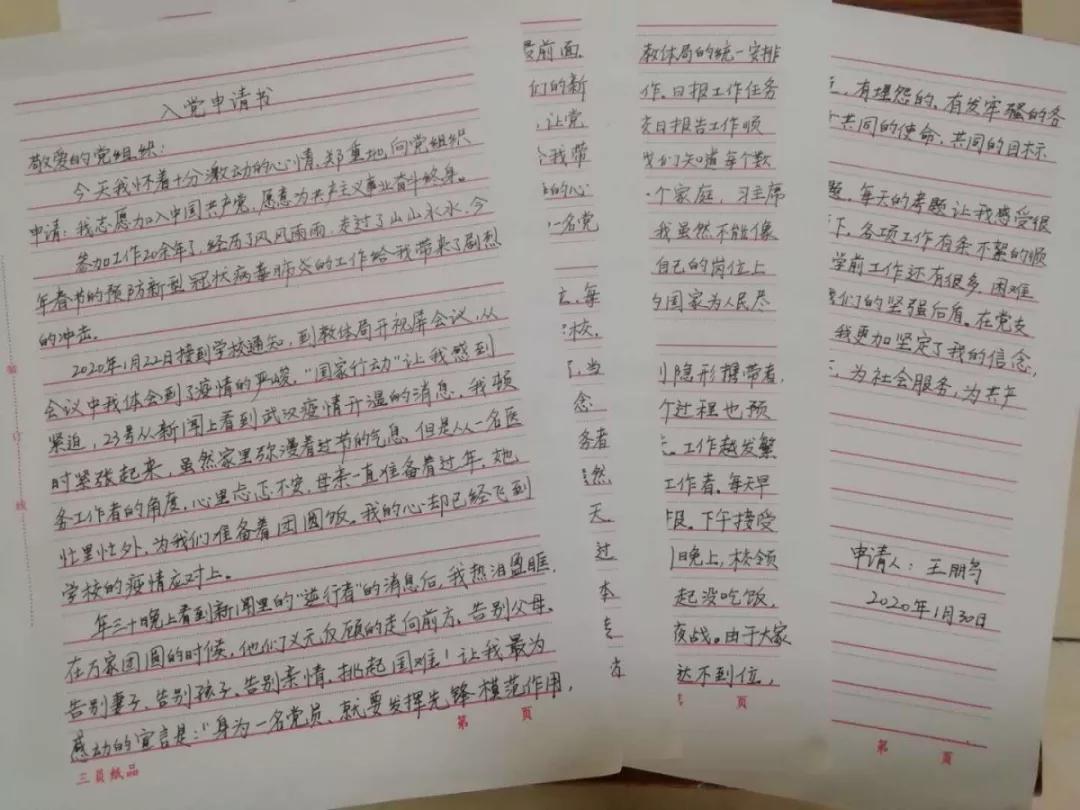 入党申请书
敬爱的党组织：
今天我怀着十分激动的心情，郑重地向党组织
申请：我志愿加入中国共产党，愿意为共产主义事业奋斗终身。
参加工作20余年了，经历了风风雨雨，走过了山山水水，今
年春节的预防新型冠状病毒肺炎的工作给我带来了剧烈
的冲击。
2020年1月22日接到学校通知，到教体局开视屏会议，从
会议中我体会到了疫情的严峻，“国家行动”让我感到
紧迫，23号从新闻上看到武汉疫情升温的消息，我顿
时紧张起来，虽然家里弥漫着过节的气息，但是从一名医
务工作者的角度，心里忐忑不安，母亲一直准备着过年，她
忙里忙外，为我们准备着团圆饭。我的心却已经飞到
学校的疫情应对上。
年三十晚上看到新闻里的“逆行者”的消息后，我热泪盈眶，
在万家团圆的时候，他们义无反顾的走向前方，告别父母，
告别妻子，告别孩子，告别亲情，挑起国难！让我最为
感动的宣言是：“身为一名党员，就要发挥先锋模范作用，
第 页
三員紙品
装
订
线
前面
们的新
，让党
我带
的心
一名党
，每
校，
当
念
务者
然
天
过
本
专
教体局的统一安排
作。日报工作任务
日报告工作顺
我们知道每个数
个家庭，习主席
我虽然不能像
自己的岗位上
国家为人民尽
隐形携带者，
个过程也预
工作越发繁
工作者。每天早
报，下午接受
晚上，校领
起没吃饭，
夜战。由于大家
达不到位，
页
，有埋怨的，有发牢骚的各
共同的使命，共同的目标
题，每天的考题让我感受很
下，各项工作有条不紊的顺
学前工作还有很多，困难
我们的坚强后盾。在党支
我更加坚定了我的信念，
，为社会服务，为共产
申请人：王鹏
2020年1月30日
第 页